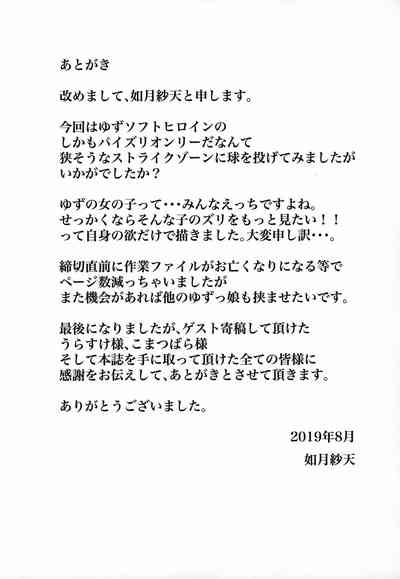 あとがき
改めまして、如月紗天と申します。
今回はゆずソフトヒロインの
しかもパイズリオンリーだなんて
狭そうなストライクゾーンに球を投げてみましたが
いかがでしたか？
ゆずの女の子って・・・みんなえっちですよね。
せっかくならそんな子のズリをもっと見たい！！
って自身の欲だけで描きました。大変申し訳・・・。
締切直前に作業ファイルがお亡くなりになる等で
ページ数減っちゃいましたが
また機会があれば他のゆずっ娘も挟ませたいです。
最後になりましたが、ゲスト寄稿して頂けた
うらすけ様、こまつばら様
そして本誌を手に取って頂けた全ての皆様に
感謝をお伝えして、あとがきとさせて頂きます。
ありがとうございました。
2019年8月
如月紗天